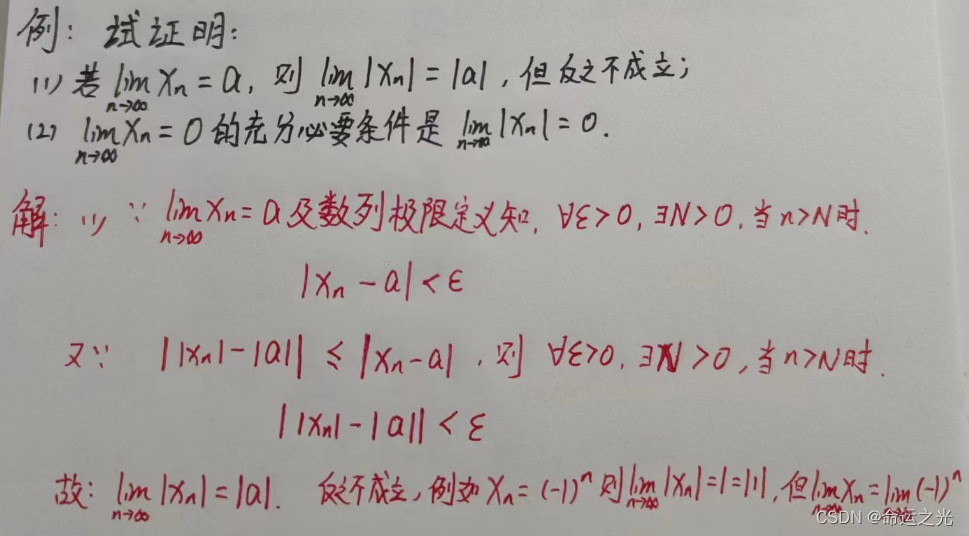 例: 试证明:
(1) 若 lim n→∞ xn = a, 则 lim n→∞ |xn| = |a|, 但反之不成立;
(2) lim n→∞ xn = 0 的充分必要条件是 lim n→∞ |xn| = 0.
解: (1) ∵ lim n→∞ xn = a 及数列极限定义知, ∀ε>0, ∃N>0, 当n>N时.
|xn - a| < ε
又∵ ||xn| - |a|| ≤ |xn - a|, 则 ∀ε>0, ∃N>0, 当n>N时.
||xn| - |a|| < ε
故: lim n→∞ |xn| = |a|. 反之不成立, 例如 xn = (-1)^n 则 lim n→∞ |xn| = 1 = |1|, 但 lim n→∞ xn = lim (-1)^n
CSDN @命运之光